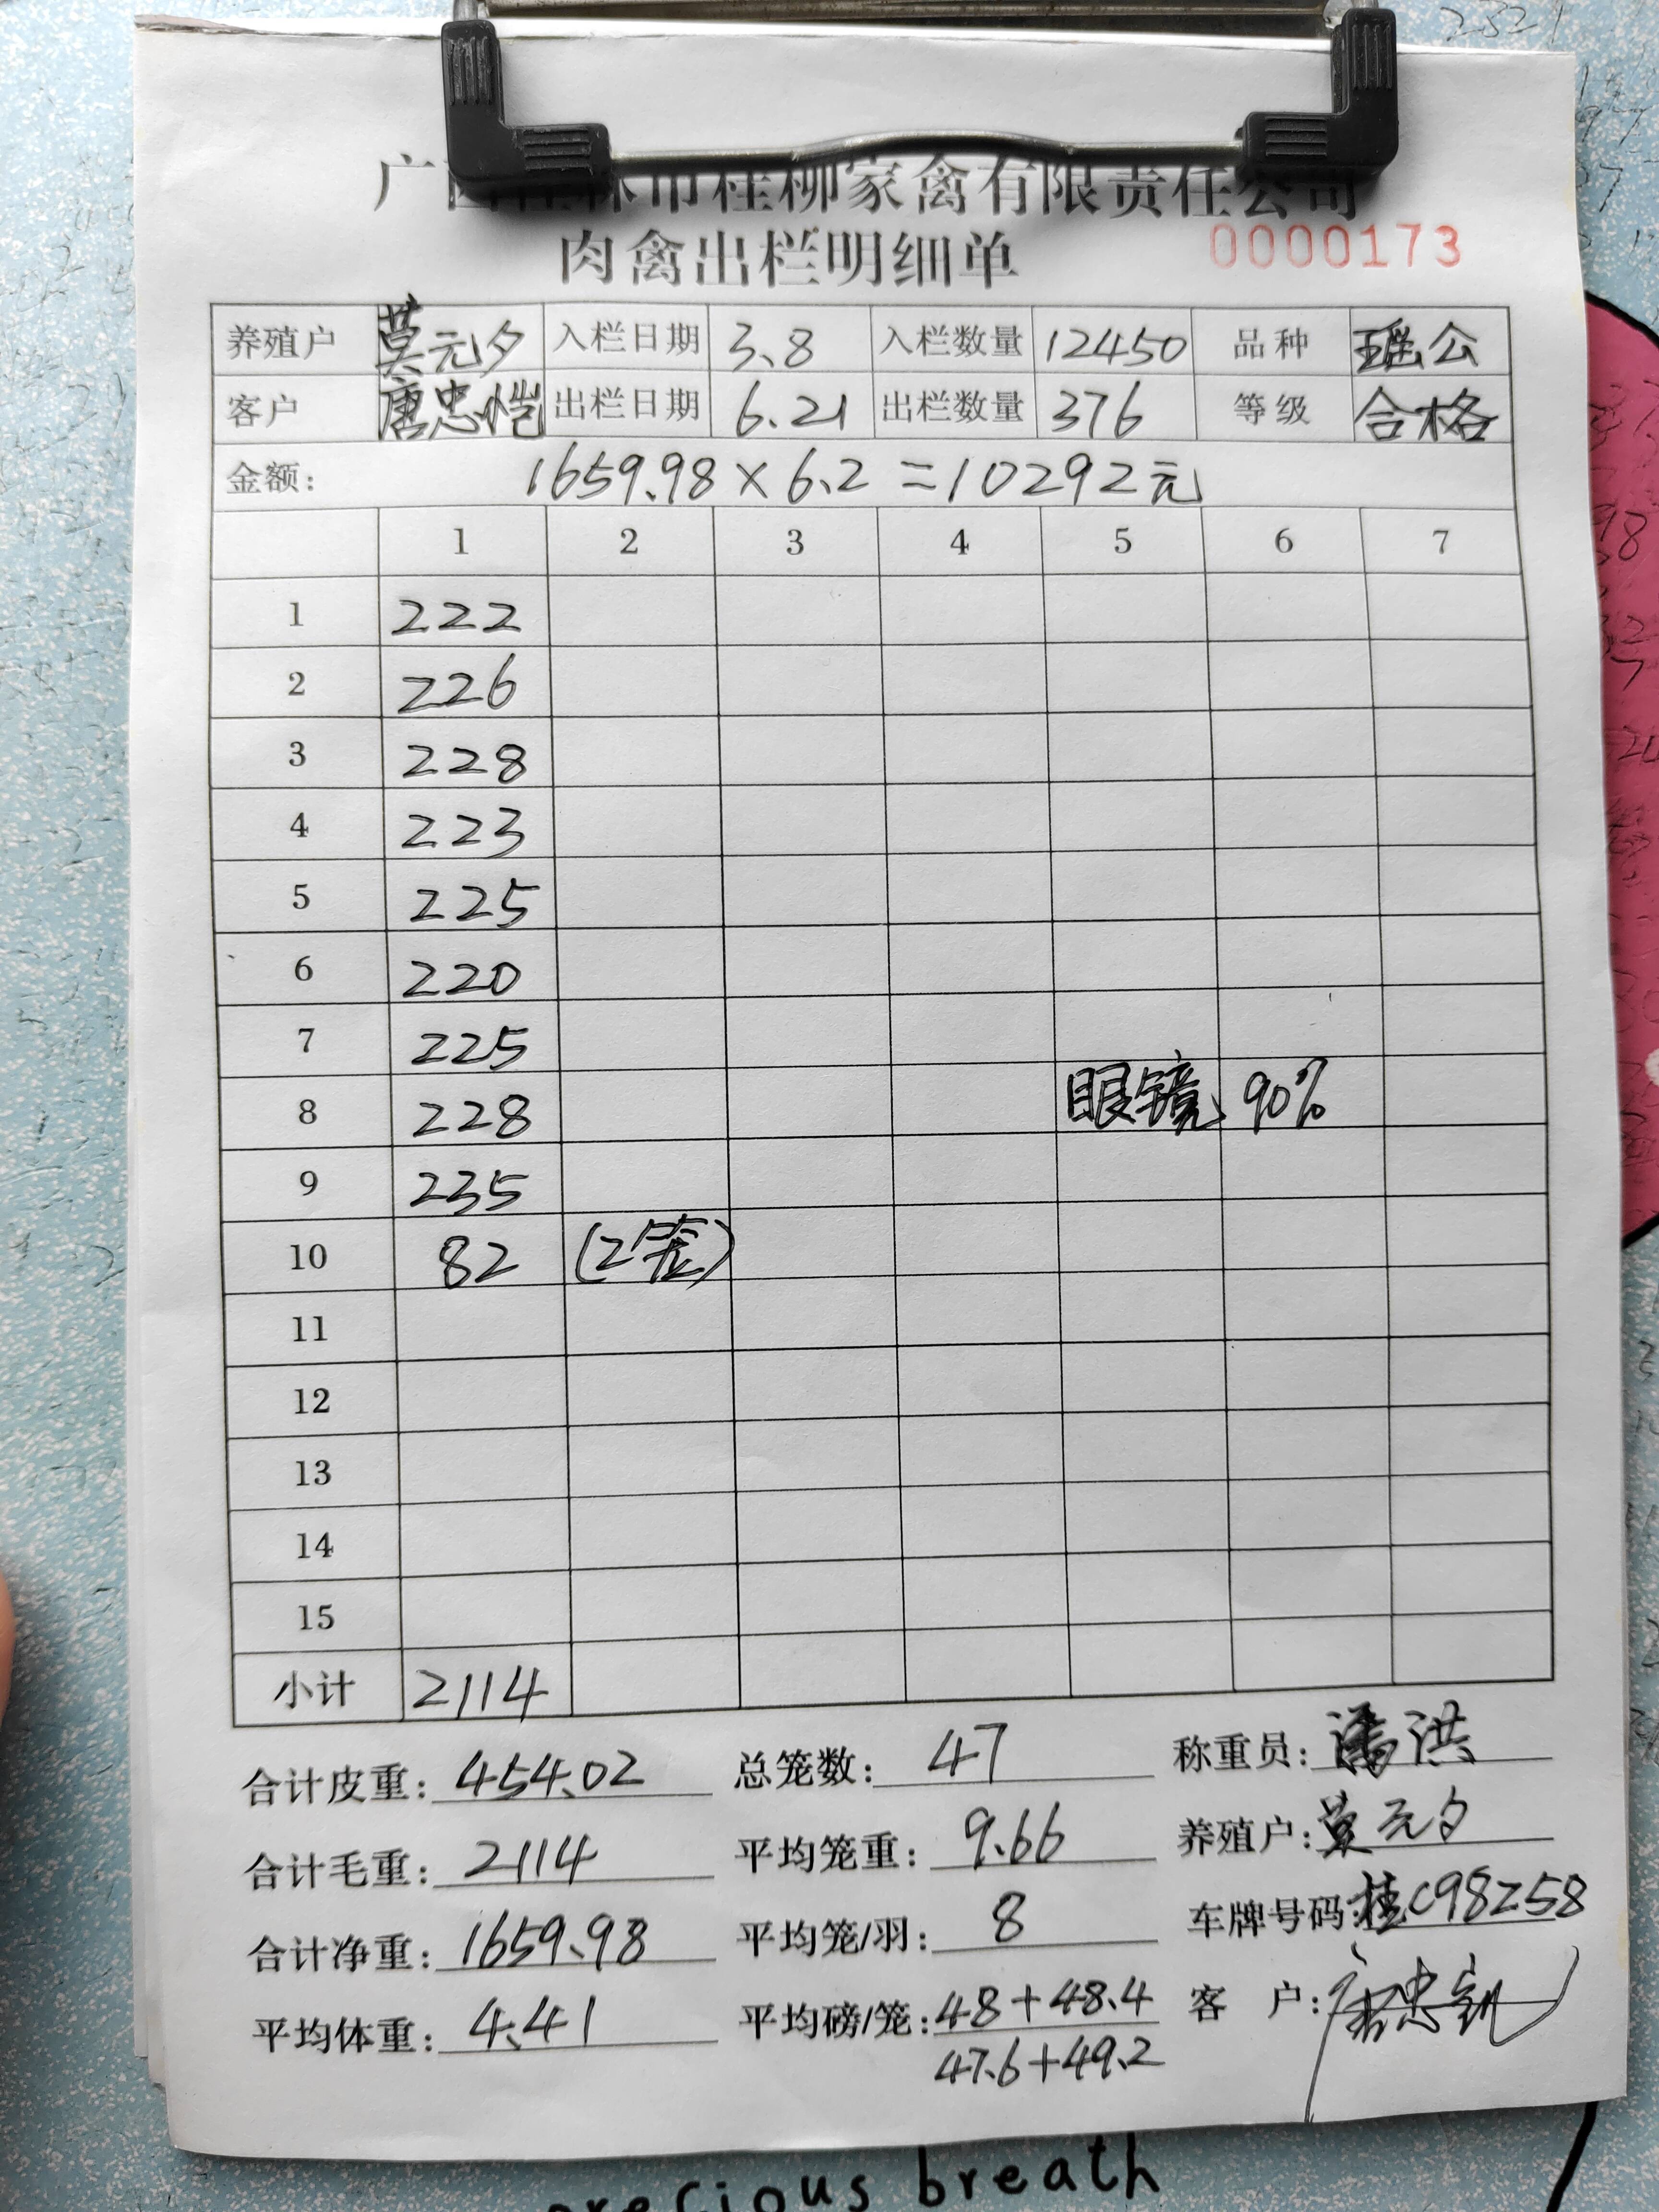 广西桂林市桂柳家禽有限责任公司
肉禽出栏明细单 0000173
养殖户 莫元夕 入栏日期 3.8 入栏数量 12450 品种 瑶公
客户 唐忠恺 出栏日期 6.21 出栏数量 376 等级 合格
金额: 1659.98×6.2=10292元
1 2 3 4 5 6 7
1 222
2 226
3 228
4 223
5 225
6 220
7 225
8 228 眼镜 90%
9 235
10 82 (2笼)
11
12
13
14
15
小计 2114
合计皮重: 454.02 总笼数: 47 称重员: 潘洪
合计毛重: 2114 平均笼重: 9.66 养殖户: 莫元夕
合计净重: 1659.98 平均笼/羽: 8 车牌号码: 桂C98Z58
平均体重: 4.41 平均磅/笼: 48+48.4 客 户:
47.6+49.2
precious breath